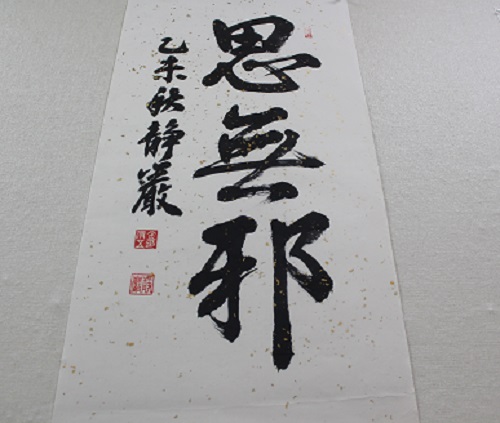 思無邪
乙未秋静巖